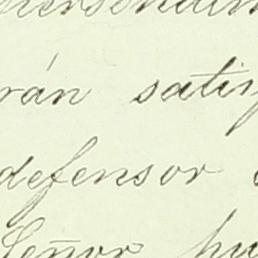 rán satis
defensor
Señor hu